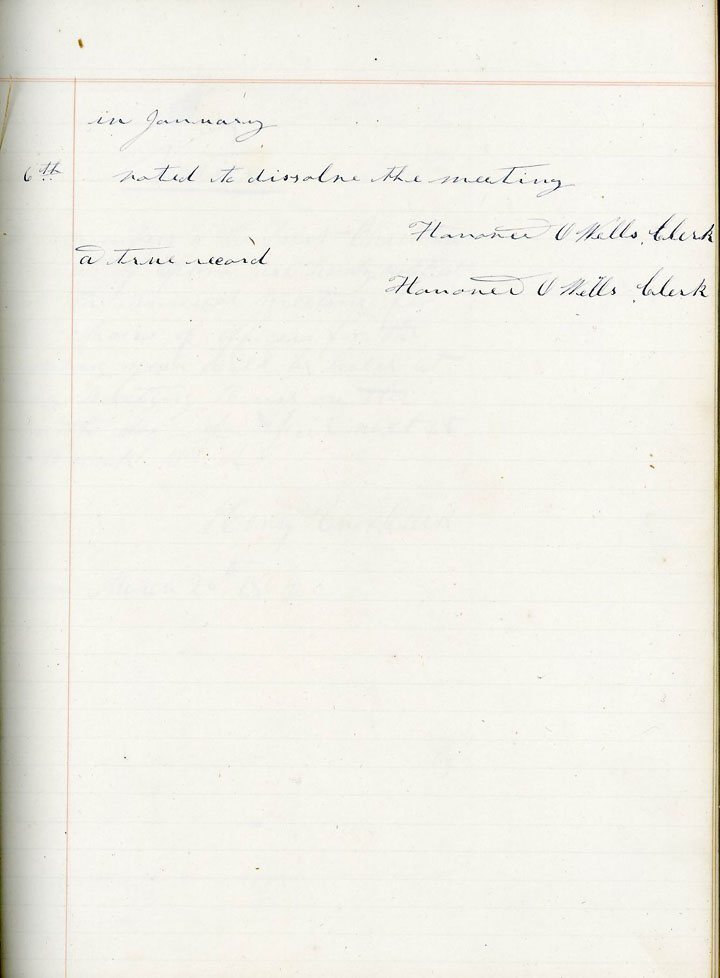 in January
6th voted to dissolve the meeting
O Wells Clerk
a true record
O Wells Clerk